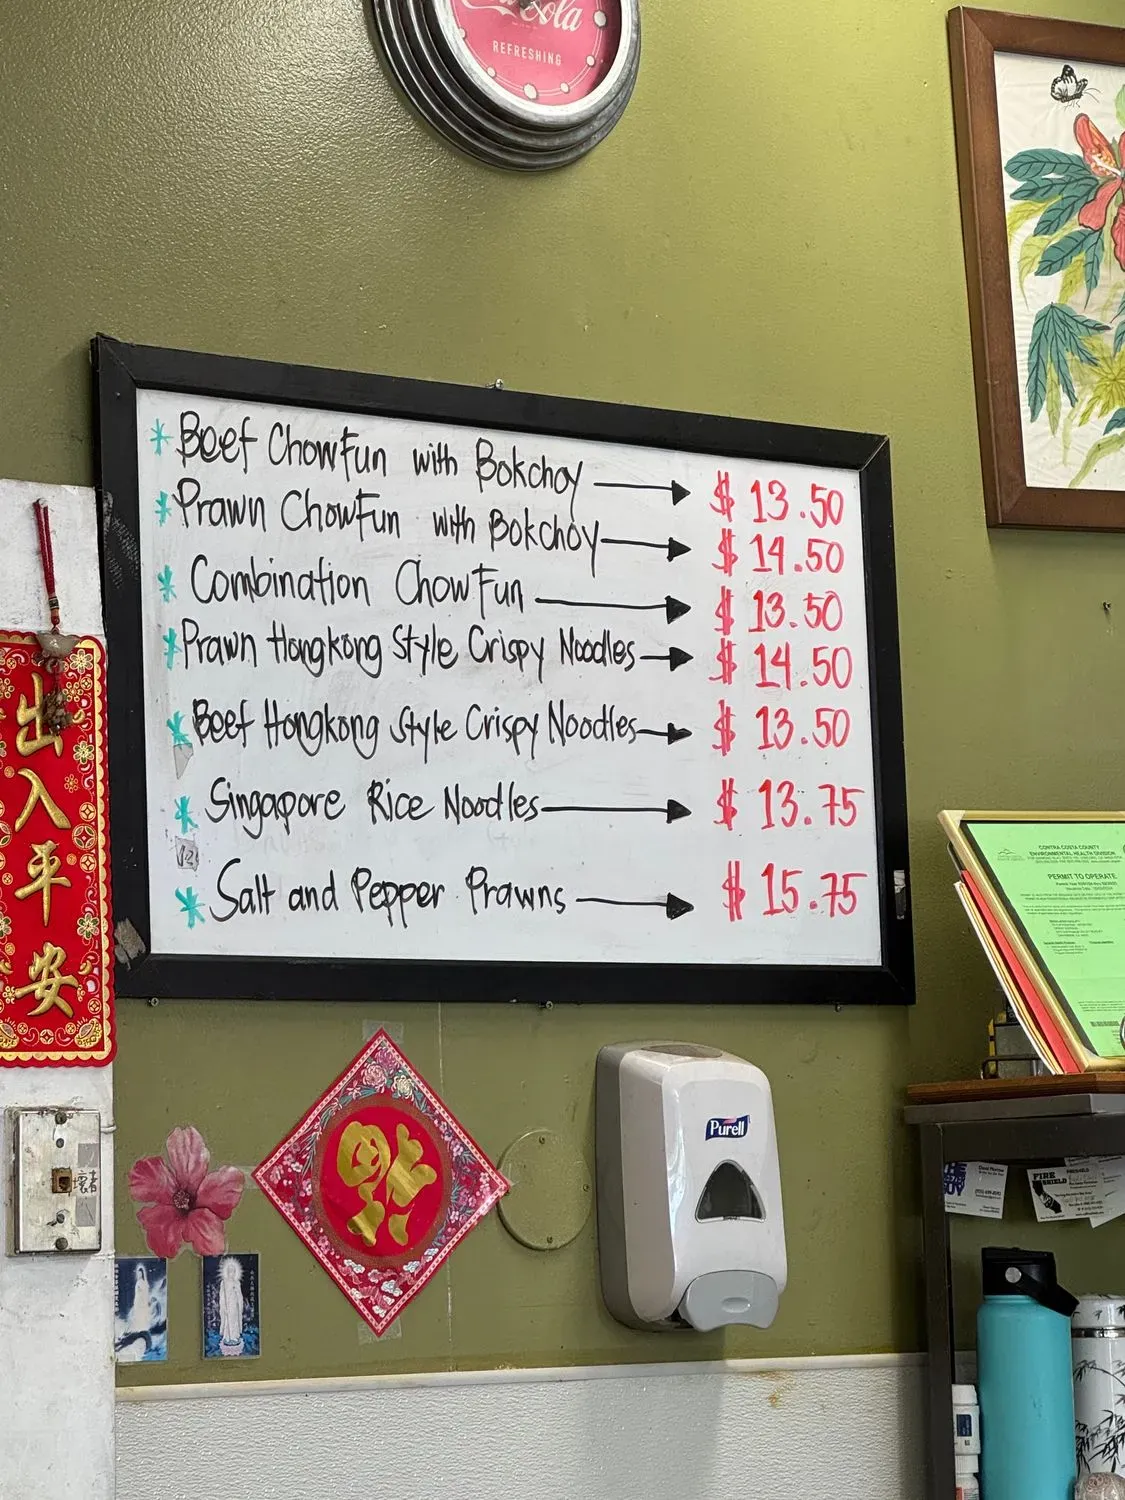 Coca-Cola
REFRESHING
* Beef Chow Fun with Bokchoy → $ 13.50
* Prawn Chow Fun with Bokchoy → $ 14.50
* Combination Chow Fun → $ 13.50
* Prawn Hongkong Style Crispy Noodles → $ 14.50
* Beef Hongkong Style Crispy Noodles → $ 13.50
* Singapore Rice Noodles → $ 13.75
* Salt and Pepper Prawns → $ 15.75
出入平安
CONTRA COSTA COUNTY
ENVIRONMENTAL HEALTH DIVISION
PERMIT TO OPERATE
福
Purell
FIRE